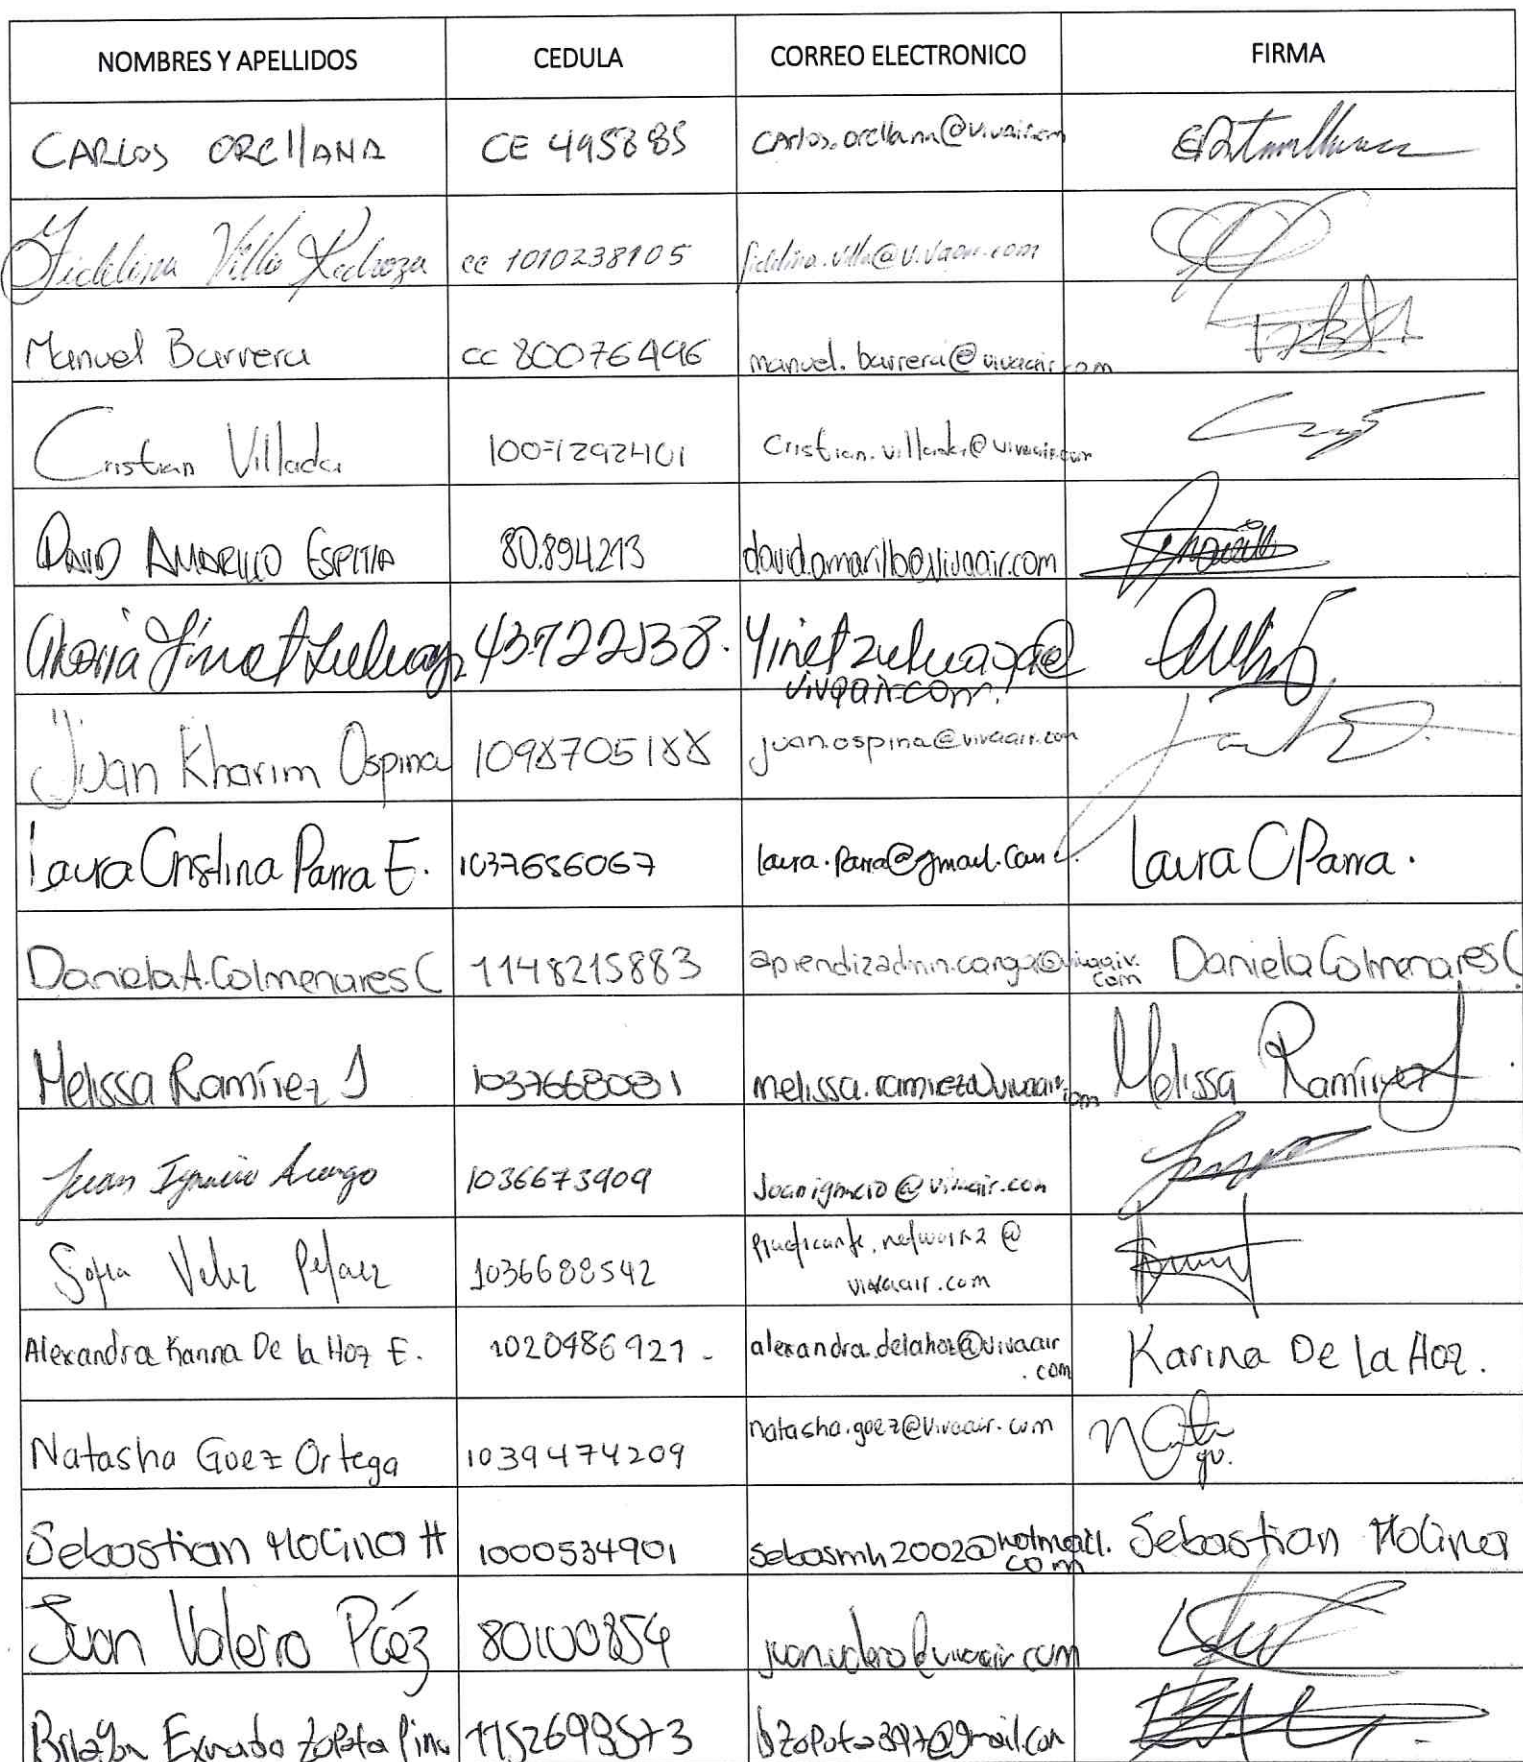 NOMBRES Y APELLIDOS CEDULA CORREO ELECTRONICO FIRMA
CARLOS ORELLANA CE 495885 carlos.orellana@vivaair.com
Fidelina Villa Pedroza cc 1010238105 fidelina.villa@vivaair.com
Manuel Barrera cc 80076496 manuel.barrera@vivaair.com
Cristian Villada 1007292401 cristian.villada@vivaair.com
DAVID AMARILLO ESPITIA 80.894.213 david.amarillo@vivaair.com
Gloria Yinet Zuluaga 43722538. Yinet zuluaga@
vivaair.com.
Juan Kharim Ospina 1098705188 juan.ospina@vivaair.com
Laura Cristina Parra E. 1037656067 laura.parra@gmail.com Laura C Parra.
Daniela A. Colmenares C 1148215883 aprendizadmin.carga@vivaair. Daniela Colmenares C
com
Melissa Ramírez J 1037668081 melissa.ramirez@vivaair.com Melissa Ramírez J
Juan Ignacio Arango 1036673909 Juanignacio@vivaair.com
Sofia Velez Pelaez 1036688542 Practicante.network2@
vivaair.com
Alexandra Karina De la Hoz E. 1020486921 - alexandra.delahoz@vivaair
.com Karina De La Hoz.
Natasha Goez Ortega 1039474209 natasha.goez@vivaair.com
Sebastian Molina H 1000534901 sebasmh2002@hotmail. Sebastian Molina
com
Juan Valero Páez 80100854 juan.valero@vivaair.com
Zapata Pina bzapata397@gmail.com